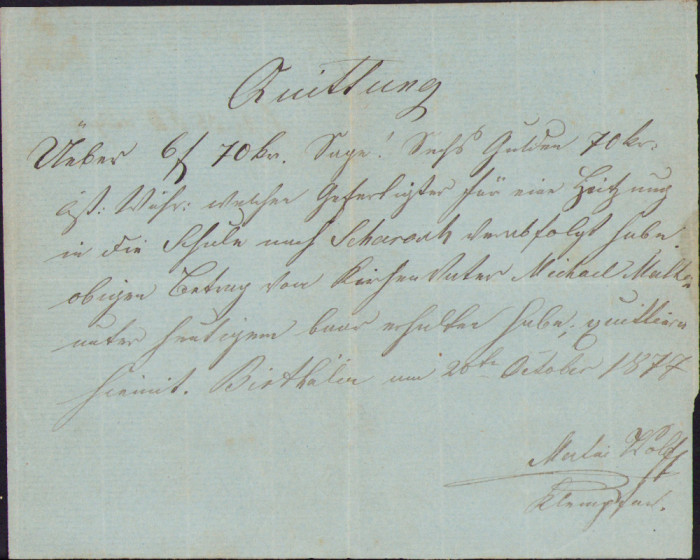 Quittung
Üeber 6 f 70 kr. Sage! Sechs Gulden 70 kr:
öst: Währ: welchen Gefertigter für eine Heitzung
in die Schule nach Scharosch verabfolgt habe.
obigen Betrag von Kirchenvater Michael
unter heutigem baar erhalten habe; quittiere
hiemit. Birthälm am 20ten October 1877
Wolff
Klempner.